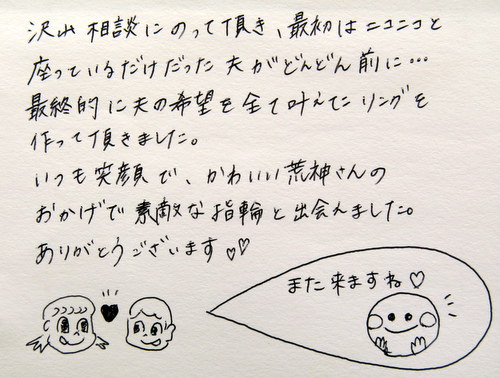 沢山相談にのって頂き、最初はニコニコと
座っているだけだった夫がどんどん前に…
最終的に夫の希望を全て叶えてたリングを
作って頂きました。
いつも笑顔で、かわいい荒神さんの
おかげで素敵な指輪と出会えました。
ありがとうございます♡♡
また来ますね♡